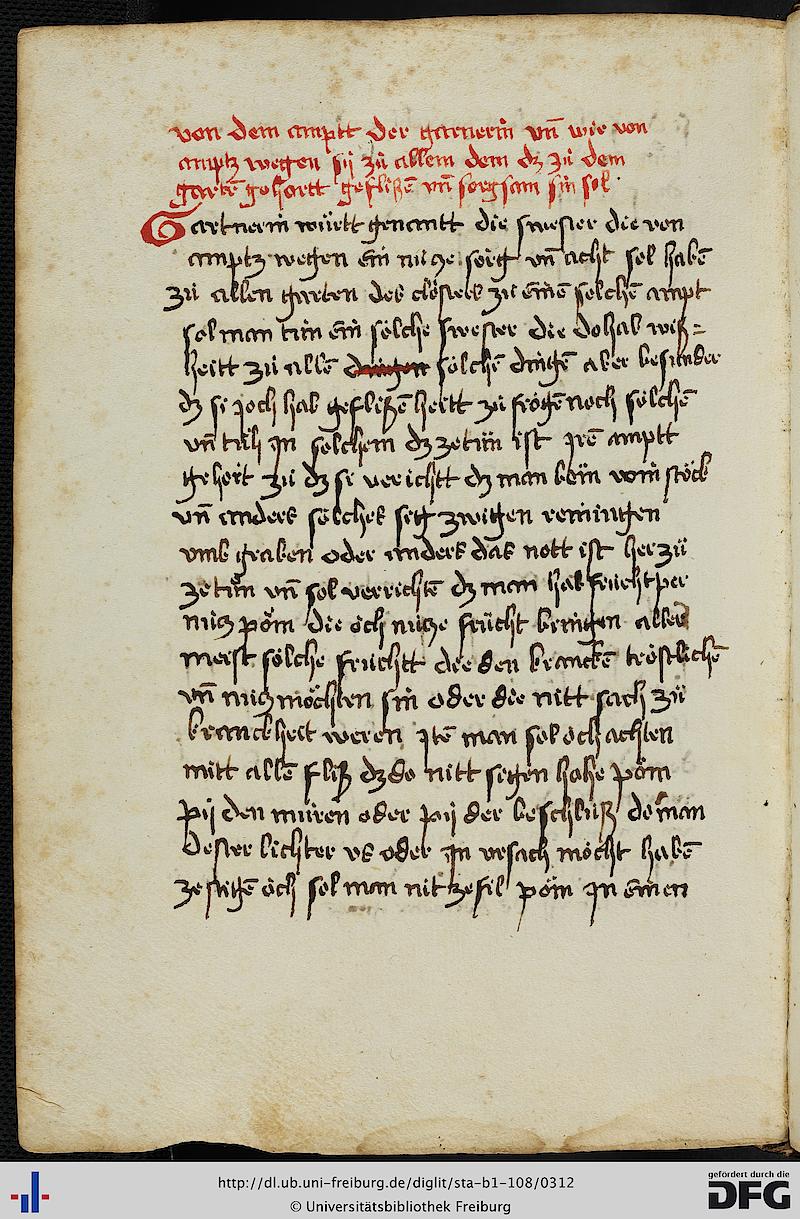 von dem amptt der garnerin vn̄ wie von
amptz wegen sÿ zů allem dem dz zů dem
gartē gehortt geflißen vn̄ sorgsam sin sol
Gartnerin württ genantt die swester die von
amptz wegen ein nücze sorg vn̄ acht sol habē
zů allen garten des closters zů einē solchē ampt
sol man tůn ein sölche swester die do hab wiß=
heitt zů allē dingen sölchē dingē aber besunder
dz si joch hab geflißēheitt zů frogē noch sölchē
vn̄ tüh jn solchem dz zetůn ist jrē amptt
gehort zů dz si verichtt dz man böm vom stöck
vn̄ anders sölches seg zwigen reiningen
vmb graben oder anders das nott ist her zů
zetůn vn̄ sol verrichtē dz man hab fruchtper
nücz pöm die öch nücze frücht bringen aller
meist sölche fruchtt die den kranckē tröstlichē
vn̄ nücz möchten sin oder die nitt sach zů
kranckheit weren jtē man sol och achten
mitt allē fliß dz do nitt segen hohe pöm
pÿ den muren oder pÿ der beschluß do man
dester lichter vs oder jn vrsach möcht habē
ze stigē öch sol man nit ze fil pöm jn einen
http://dl.ub.uni-freiburg.de/diglit/sta-b1-108/0312
© Universitätsbibliothek Freiburg
gefördert durch die
DFG